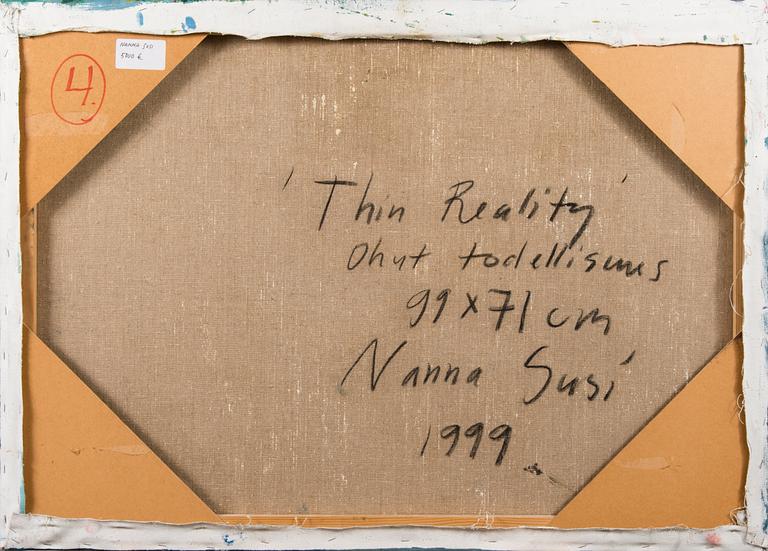 4.
NANNA SUSI
5700 €
'Thin Reality'
Ohut todellisuus
99x71 cm
Nanna Susi
1999